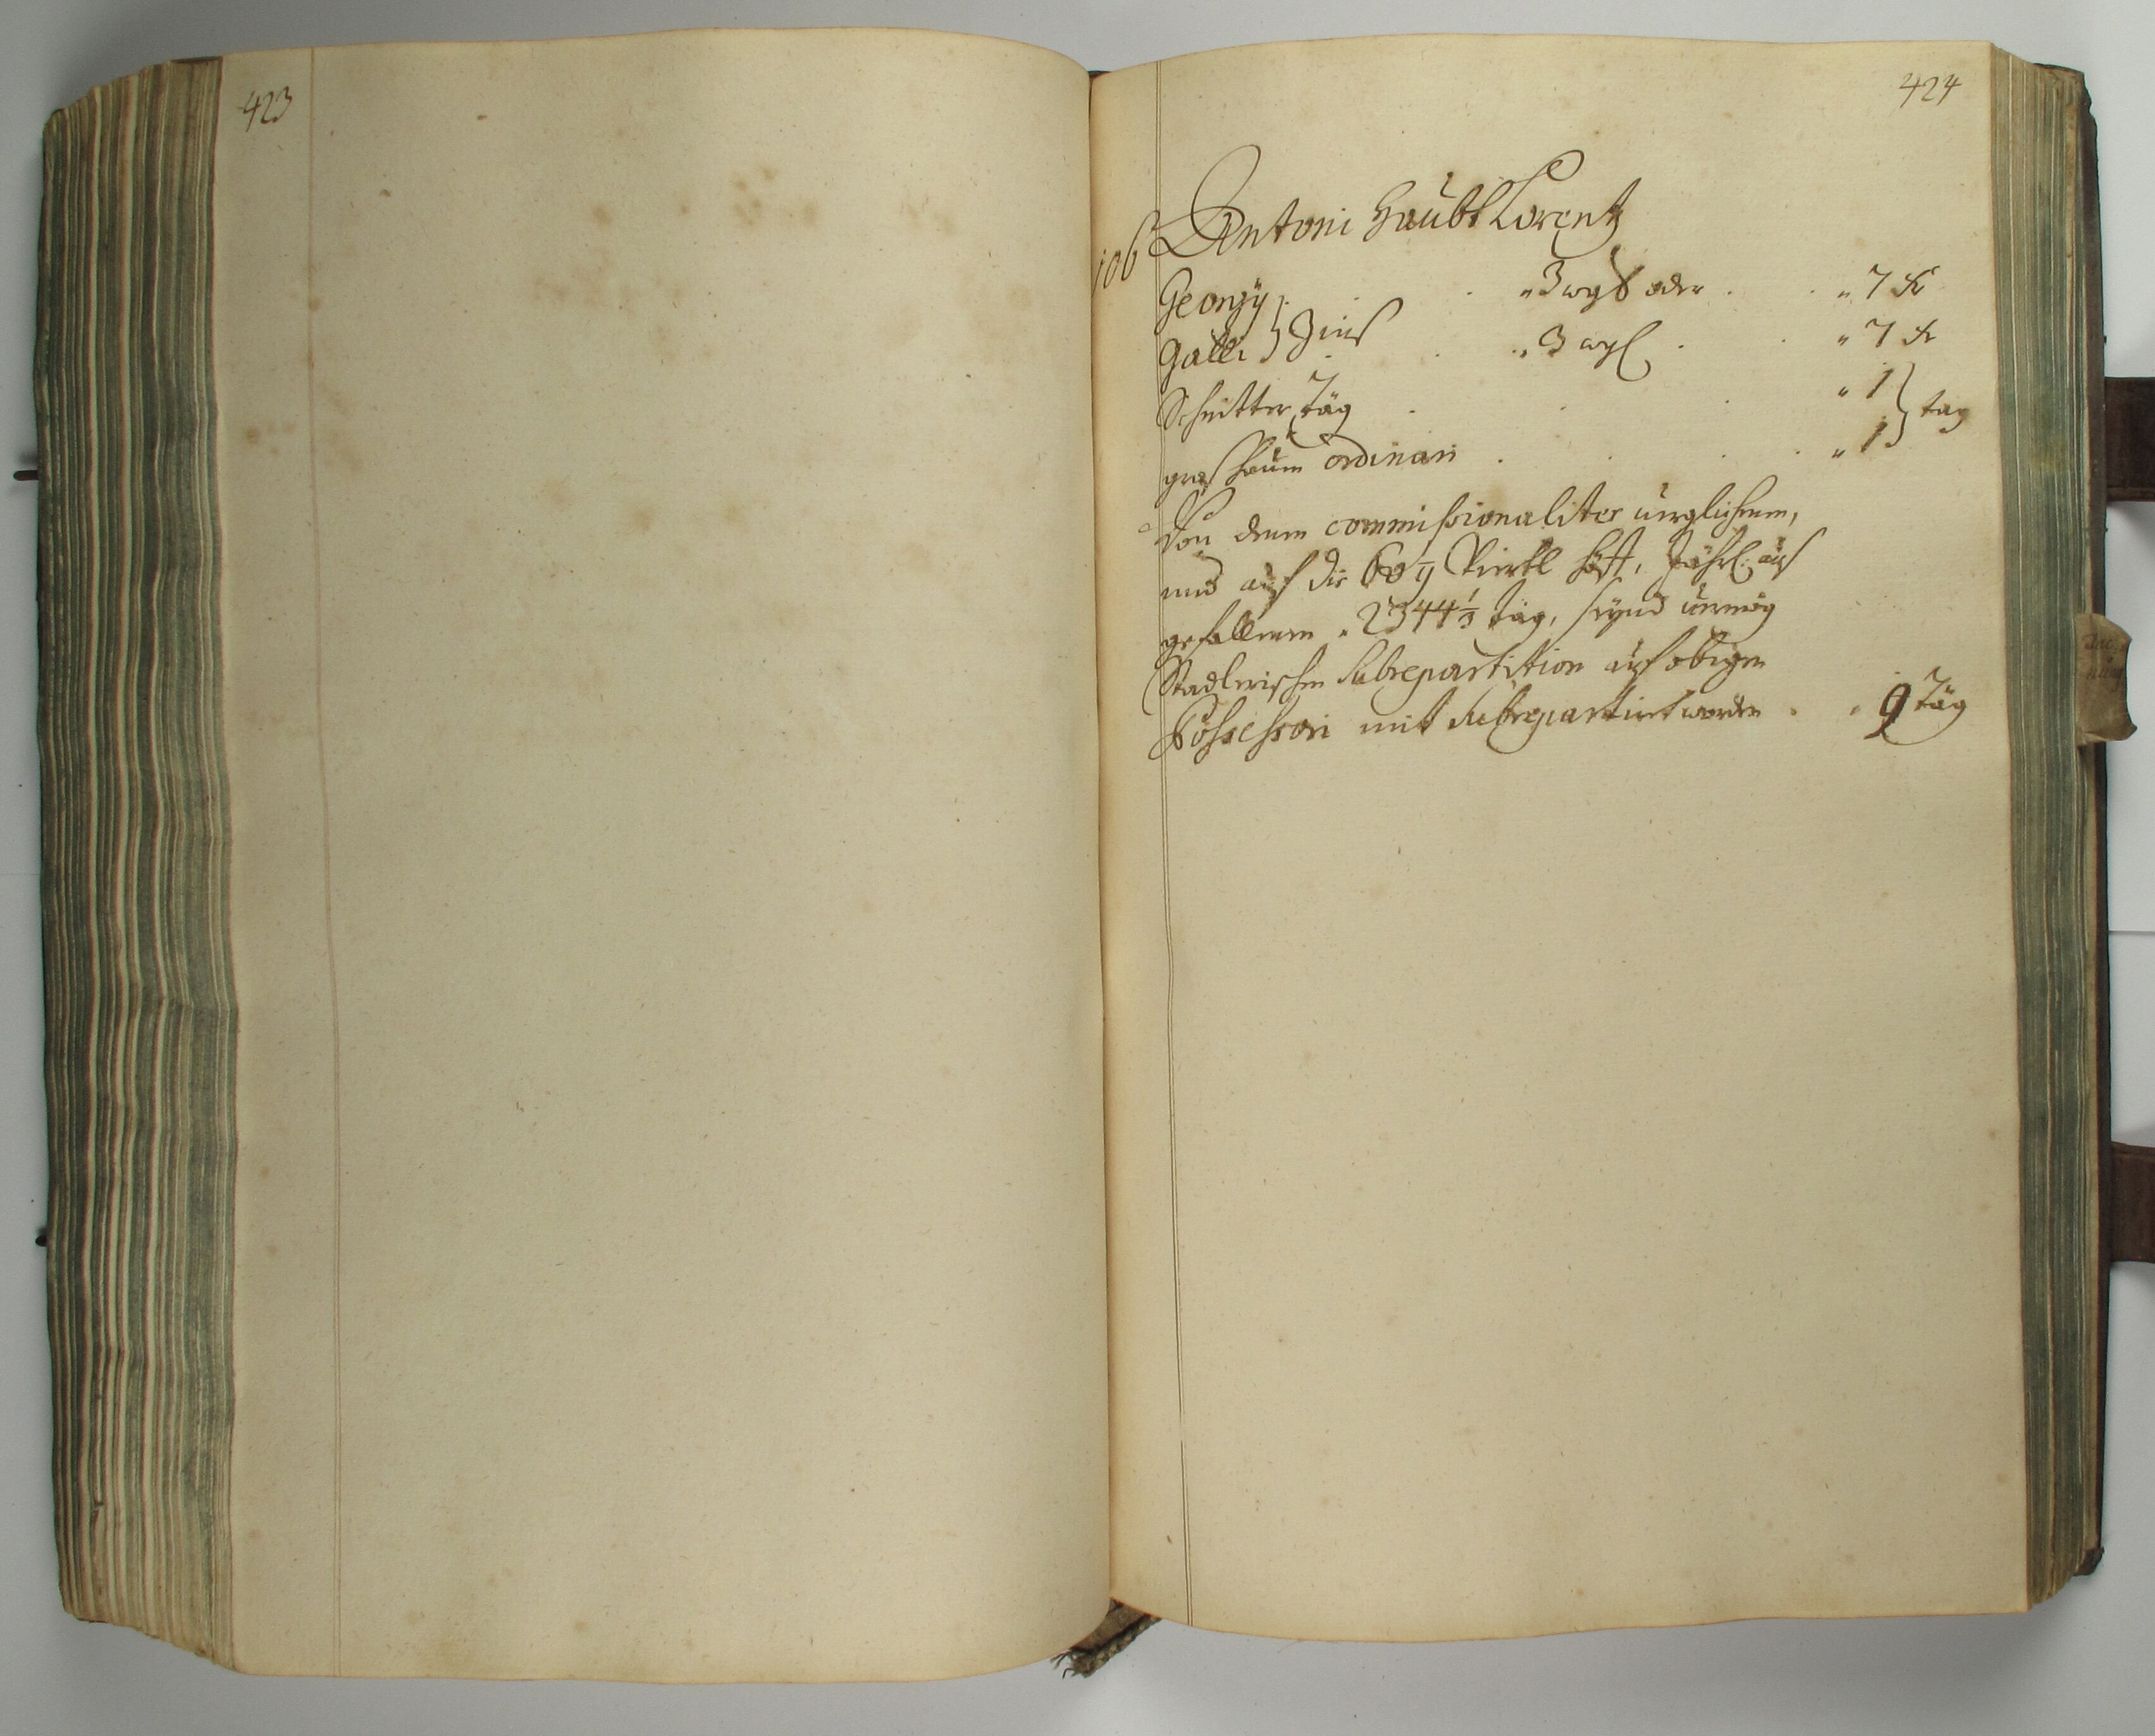 423
424
106 Antoni Haubt Lorentz
Georgÿ . . „ 3 wgß oder . . „ 7 kr
Galli } Zinß . . „ 3 wgß . . „ 7 kr
Schnitter Täg . . . „ 1
} tag
graßhäum ordinari . . . . „ 1
Von denen commissionaliter verglichenen,
und auf die 60 Viertl Höff, Jährl: auß
gefallenen „ 2344 1/3 Täg, seynd vermög
Stadlerischen Subrepartition auf obigen
Possessori mit Subrepartirt worden . „ 9 Täg